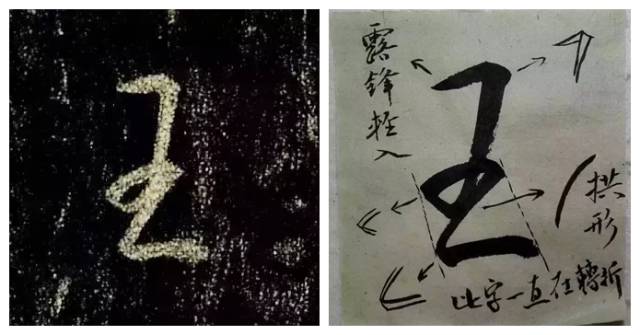 露鋒輕入
拱形
此字一直在轉折